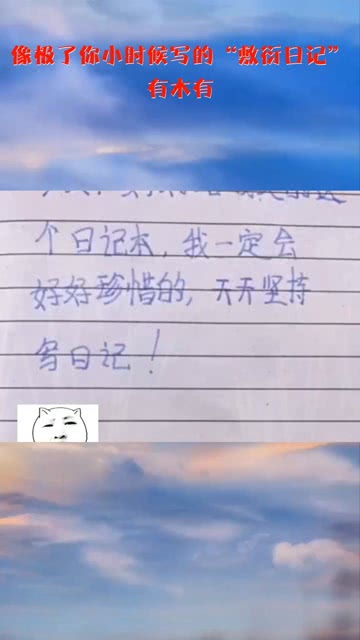 像极了你小时候写的“敷衍日记”
有木有
个日记本,我一定会
好好珍惜的,天天坚持
写日记!